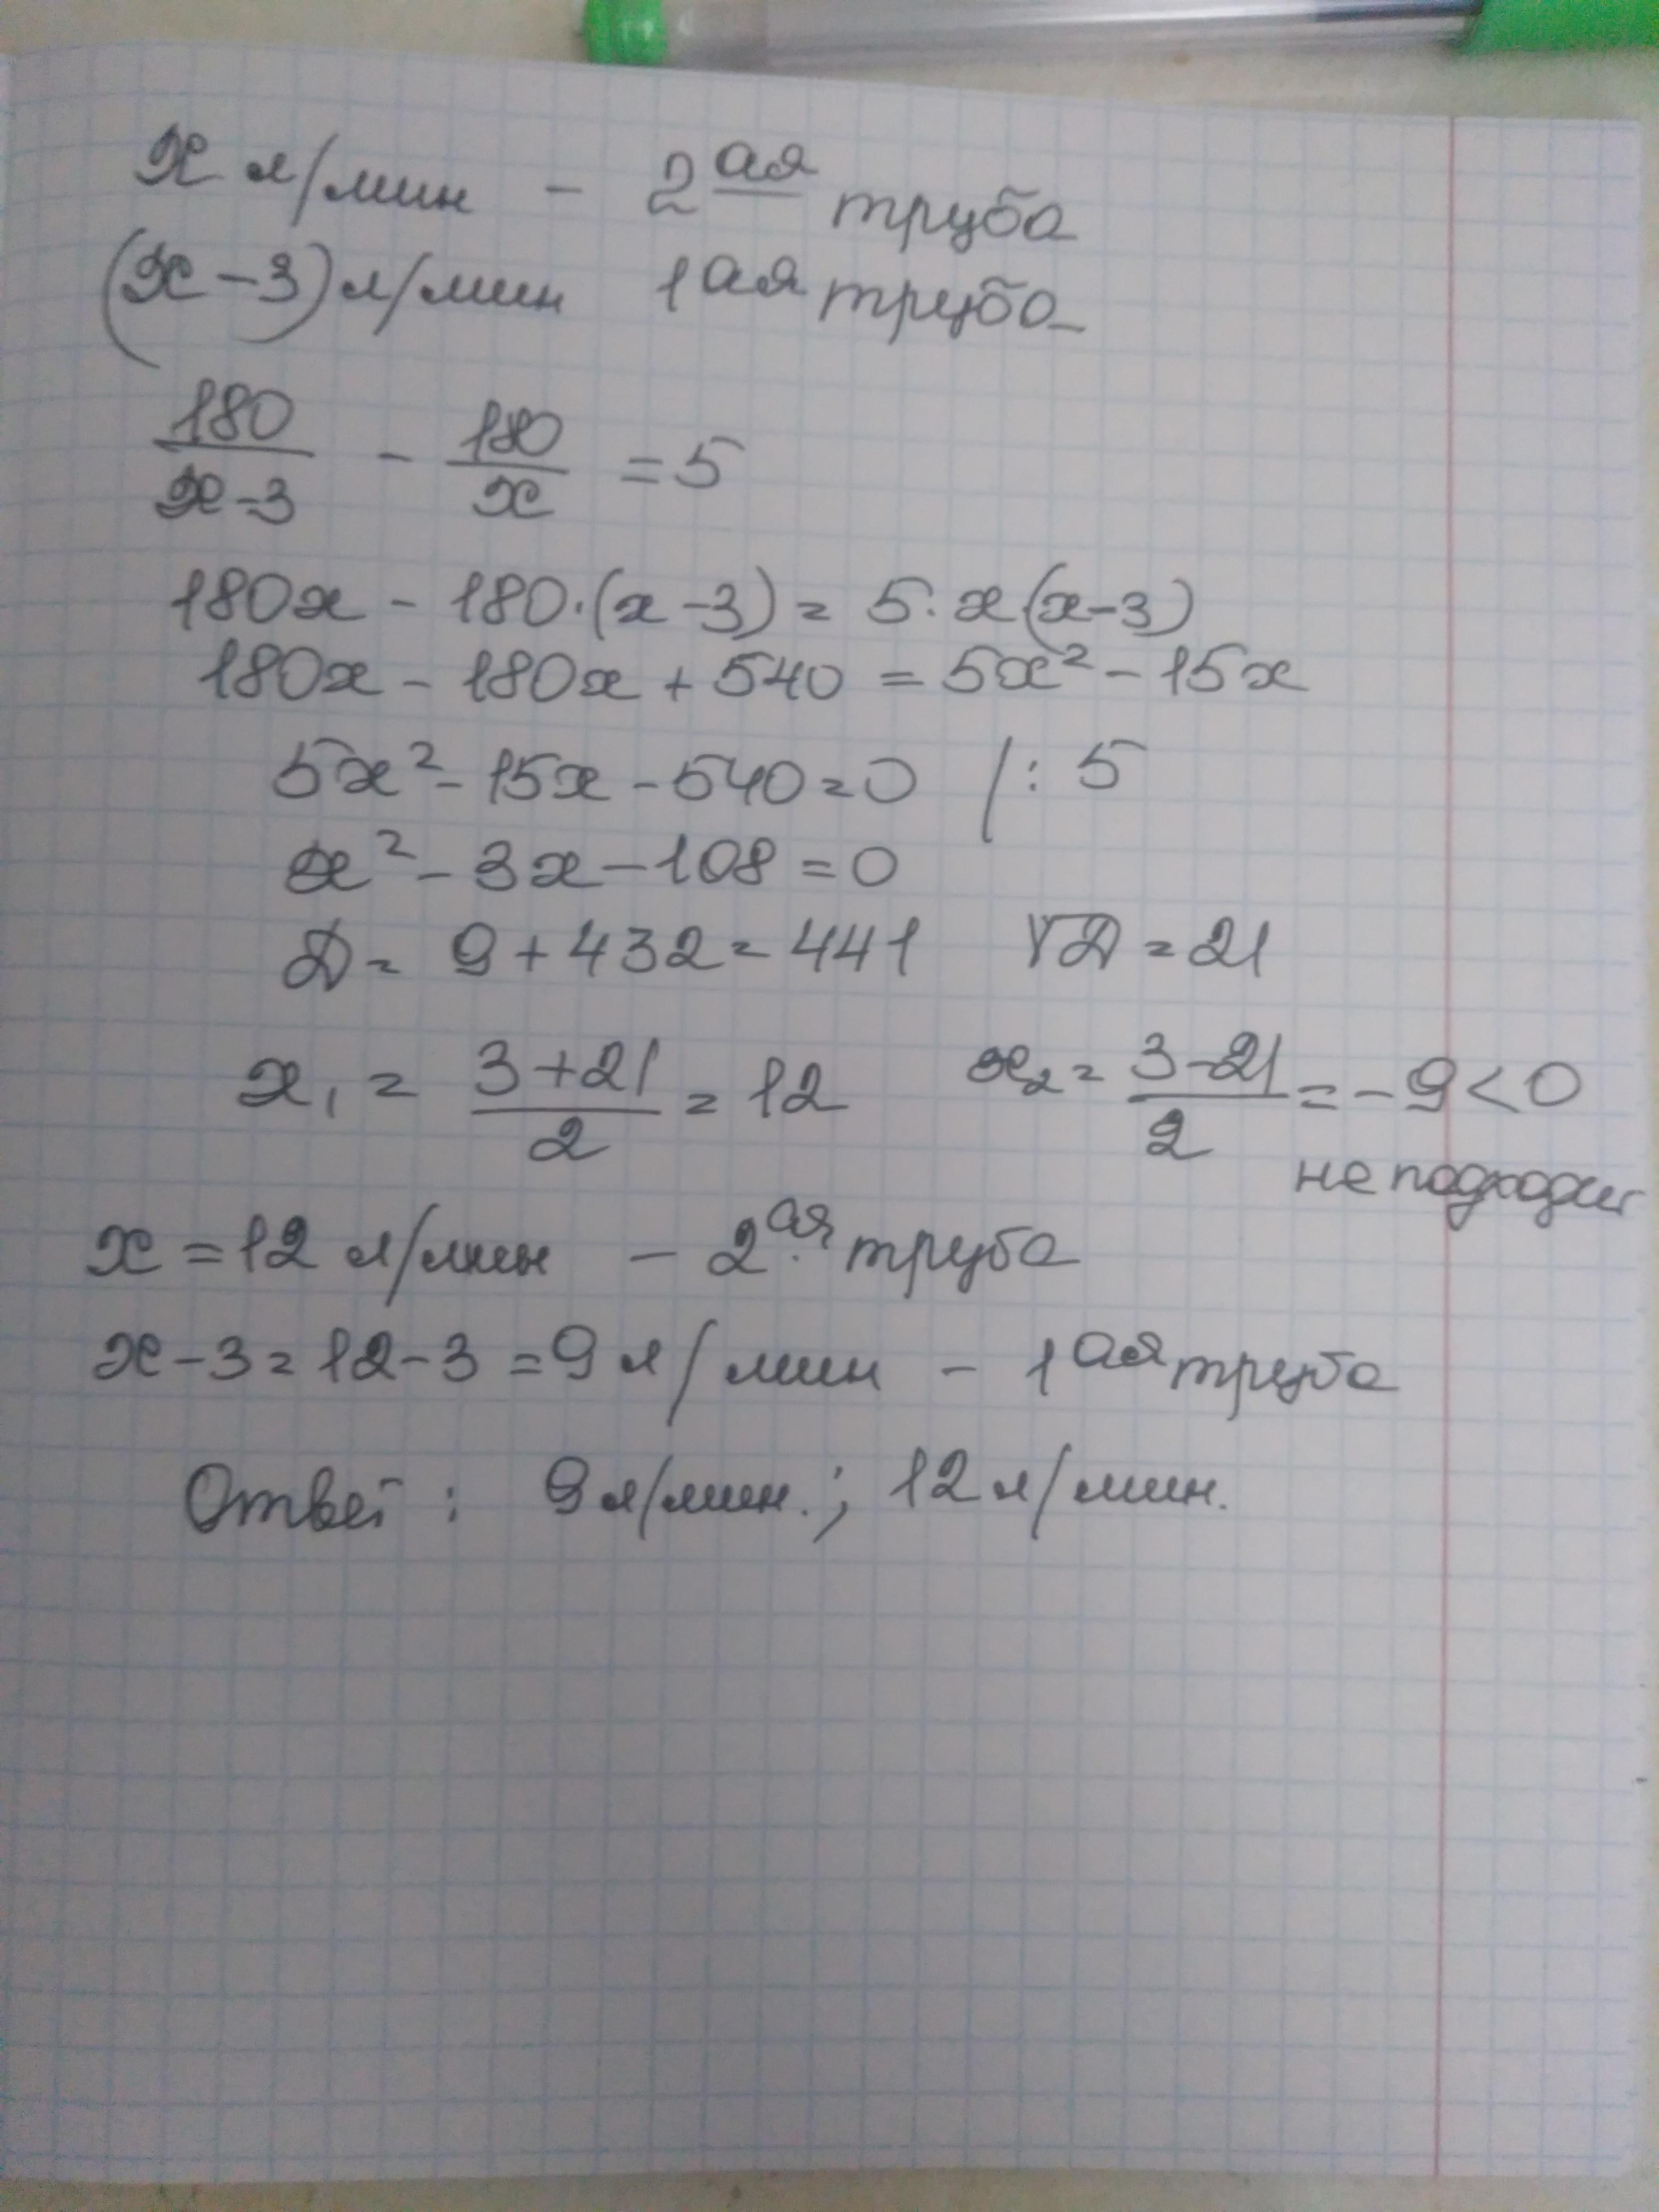 x л/мин - 2ая труба
(x-3) л/мин 1ая труба
180/(x-3) - 180/x = 5
180x - 180·(x-3) = 5·x(x-3)
180x - 180x + 540 = 5x² - 15x
5x² - 15x - 540 = 0 /: 5
x² - 3x - 108 = 0
D = 9 + 432 = 441 √D = 21
x₁ = (3+21)/2 = 12 x₂ = (3-21)/2 = -9 < 0
не подходит
x = 12 л/мин - 2ая труба
x - 3 = 12 - 3 = 9 л/мин - 1ая труба
Ответ: 9 л/мин.; 12 л/мин.